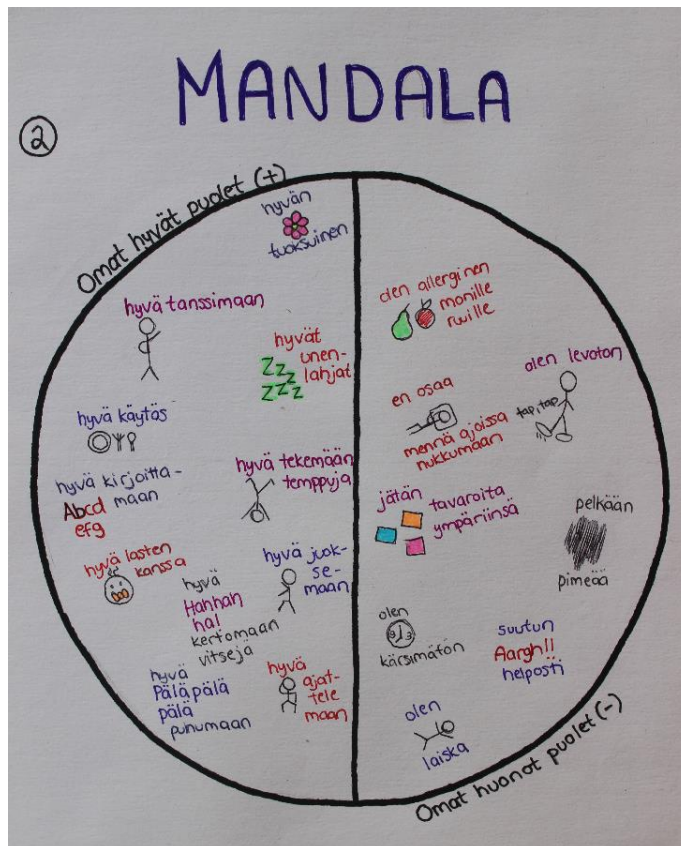 MANDALA
2
Omat hyvät puolet (+)
hyvän
tuoksuinen
hyvä tanssimaan
hyvät
unen-
lahjat
ZZZ
ZZZ
hyvä käytös
hyvä kirjoitta-
maan
Abcd
efg
hyvä tekemään
temppuja
hyvä lasten
kanssa
hyvä
Hahhah
hal
kertomaan
vitsejä
hyvä juok-
se-
maan
hyvä
Päläpälä
pälä
puhumaan
hyvä
ajat-
tele
maan
olen allerginen
monille
ruuille
olen levoton
tap, tap
en osaa
mennä ajoissa
nukkumaan
jätän
tavaroita
ympäriinsä
pelkään
pimeää
olen
kärsimätön
suutun
Aargh!!
helposti
olen
laiska
Omat huonot puolet (-)